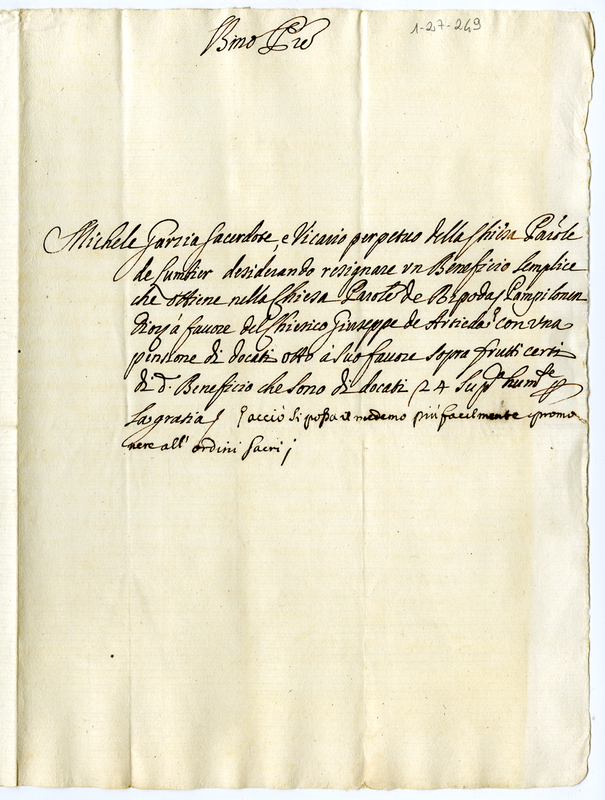 1-27-249
Bmo Pre
Michele Garzia sacerdote, e Vicario perpetuo della Chiesa Parole
de Sumbier desiderando resignare un Beneficio semplice
che ottiene nella Chiesa Parole de Bepodas Pampilonen
Dioẓ à favore del Chierico Giuseppe de Artieda con una
pensione di docati otto à suo favore sopra frutti certi
di d. Beneficio che sono di docati 24 Supca humte
la gratia / acciò si possa il medemo più facilmente promo
vere all' ordini sacri /